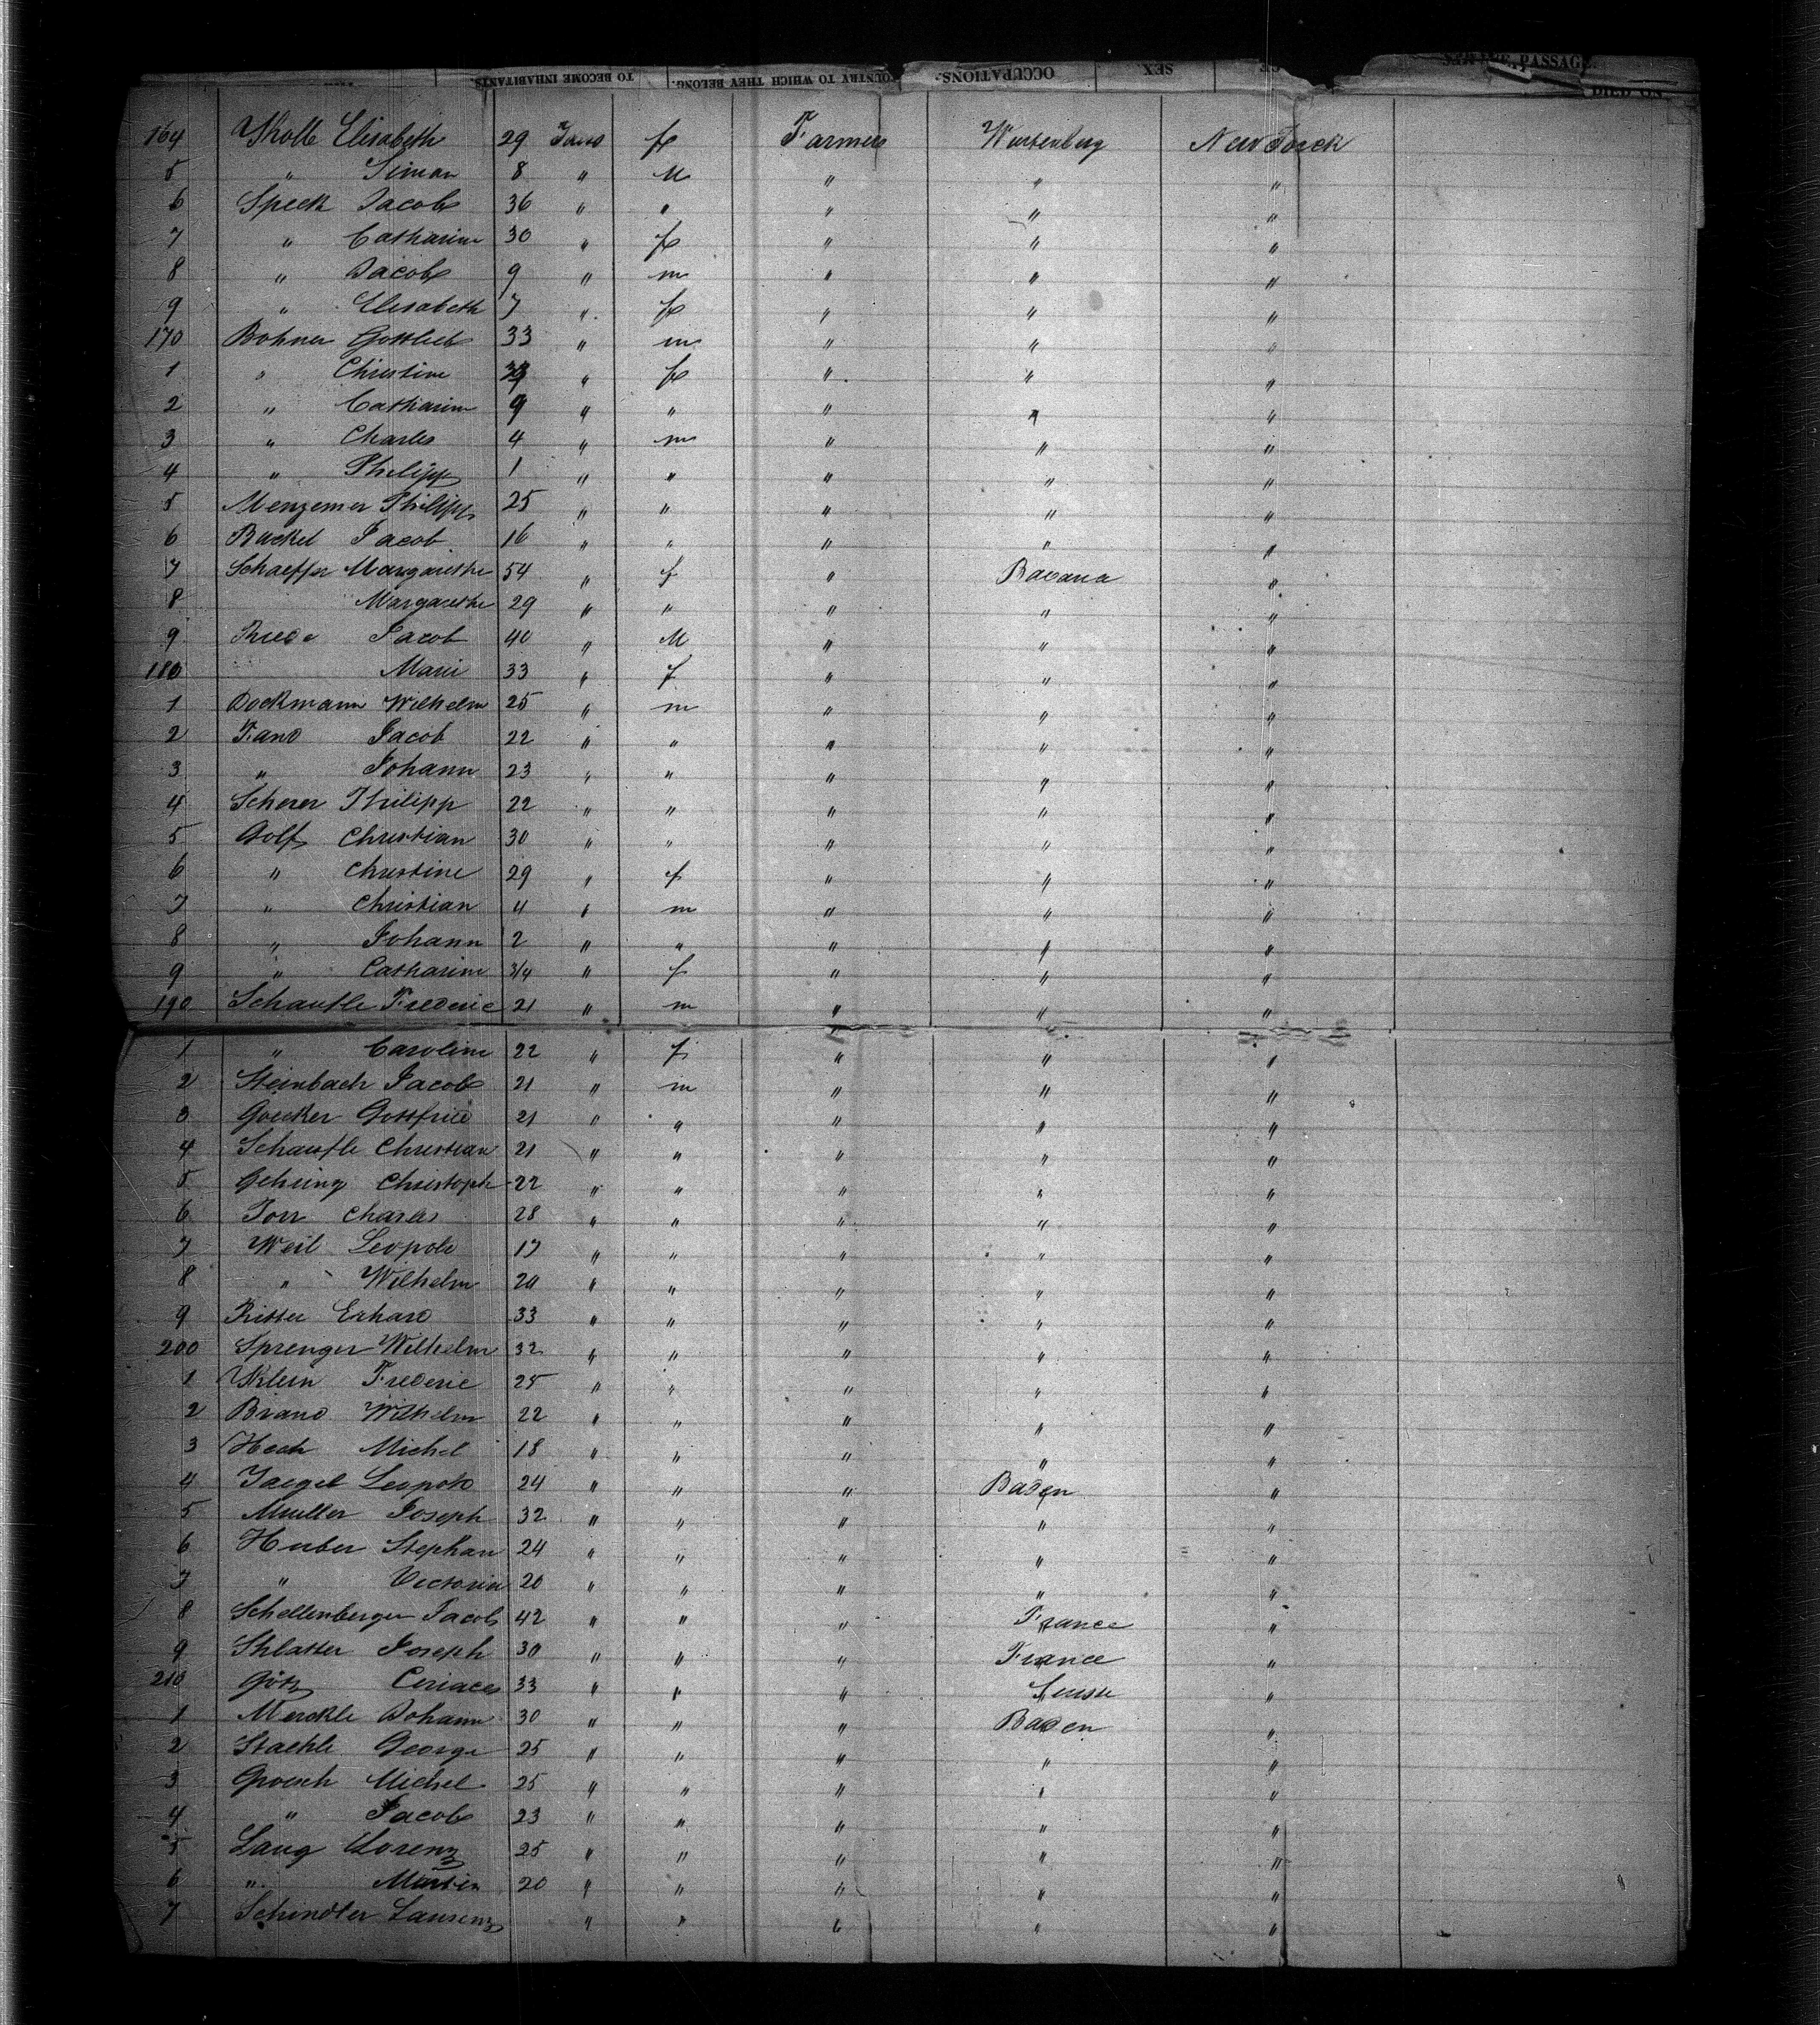 TO BECOME INHABITANTS. COUNTRY TO WHICH THEY BELONG. OCCUPATIONS. SEX PASSAGE
DIED ON
164 Elisabeth 29 f Farmers Wurtenberg New Yorck
5 " Simon 8 " M " " "
6 Speck Jacob 36 " " " " "
7 " Catharine 30 " f " " "
8 " Jacob 9 " m " " "
9 " Elisabeth 7 " f " " "
170 Bohner Gottlieb 33 " m " " "
1 " Christine " f " " "
2 " Catharine 9 " " " " "
3 " Charles 4 " m " " "
4 " Philipp 1 " " " " "
5 Menzemer Philipp 25 " " " " "
6 Buckel Jacob 16 " " " " "
7 Schaeffer Margarethe 54 " f " Bavaria "
8 Margarethe 29 " " " " "
9 Jacob 40 " M " " "
180 Marie 33 " f " " "
1 Dockmann Wilhelm 25 " m " " "
2 Fand Jacob 22 " " " " "
3 " Johann 23 " " " " "
4 Scherer Philipp 22 " " " " "
5 Golf Christian 30 " " " " "
6 " Christine 29 " f " " "
7 " Christian 4 " m " " "
8 " Johann 2 " " " " "
9 " Catharine 3/4 " f " " "
190 Schaufle Frederic 21 " m " " "
1 " Caroline 22 " f " " "
2 Steinbach Jacob 21 " m " " "
3 Goecker Gottfried 21 " " " " "
4 Schaufle Christian 21 " " " " "
5 Gehring Christoph 22 " " " " "
6 Charles 28 " " " " "
7 Weil Leopold 17 " " " " "
8 " Wilhelm 20 " " " " "
9 Ritter Erhard 33 " " " " "
200 Sprenger Wilhelm 32 " " " " "
1 Klein Frederic 25 " " " " "
2 Brand Wilhelm 22 " " " " "
3 Hech Michel 18 " " " " "
4 Jaegel Leopold 24 " " " Baden "
5 Muller Joseph 32 " " " " "
6 Huber Stephan 24 " " " " "
7 " Victoria 20 " " " " "
8 Schellenberger Jacob 42 " " " France "
9 Shlatter Joseph 30 " " " France "
210 Götz Ceriaces 33 " " " "
1 Merckle Johann 30 " " " Baden "
2 Staehle George 25 " " " " "
3 Groesch Michel 25 " " " " "
4 " Jacob 23 " " " " "
5 Laug Lorenz 25 " " " " "
6 " Martin 20 " " " " "
7 Schindler Laurenz " " " " "